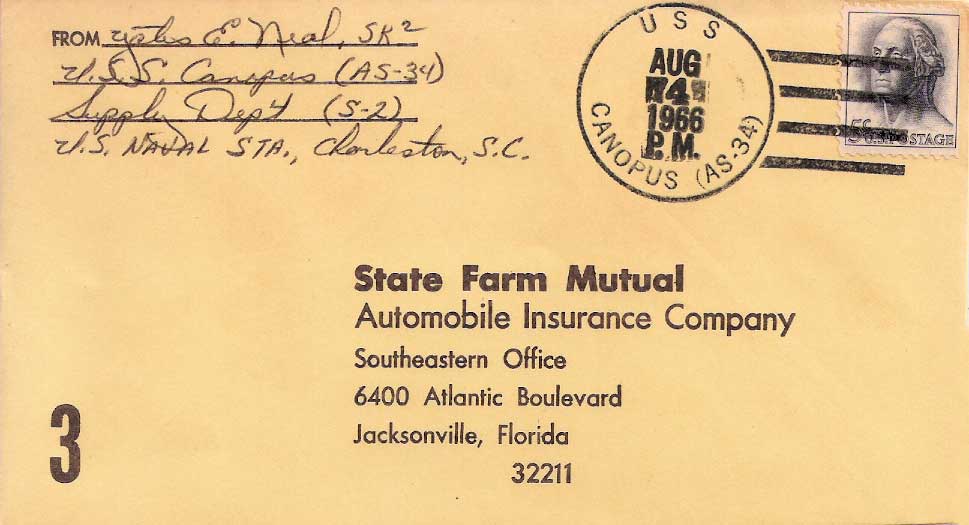 FROM Yates E. Neal, SK2
U.S.S. Canopus (AS-34)
Supply Dept (S-2)
U.S. NAVAL STA., Charleston, S.C.
USS
AUG
4
1966
P.M.
CANOPUS (AS-34)
5c U.S. POSTAGE
State Farm Mutual
Automobile Insurance Company
Southeastern Office
6400 Atlantic Boulevard
Jacksonville, Florida
32211
3